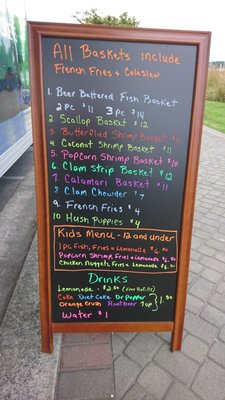 All Baskets include
French Fries & Coleslaw
1. Beer Battered Fish Basket
2pc $11 3pc $14
2 Scallop Basket $12
3 Butterflied Shrimp Basket $11
4 Coconut Shrimp Basket $11
5 Popcorn Shrimp Basket $10
6 Clam Strip Basket $12
7 Calamari Basket $11
8 Clam Chowder $7
9. French Fries $4
10 Hush Puppies $4
Kids Menu - 12 and under
1pc Fish, Fries & Lemonade $6
Popcorn Shrimp, Fries & Lemonade $6.50
Chicken Nuggets, Fries & Lemonade $6.50
Drinks
Lemonade - $2.50 (Free Refills)
Coke Diet Coke Dr Pepper
Orange Crush Root Beer 7up
1.50
Water $1